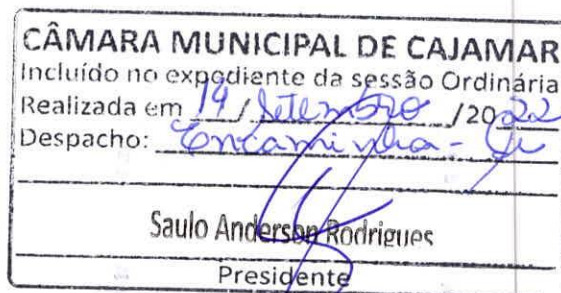 CÂMARA MUNICIPAL DE CAJAMAR
Incluído no expediente da sessão Ordinária
Realizada em 14 / Setembro / 2022
Despacho: Encaminha-se
Saulo Anderson Rodrigues
Presidente